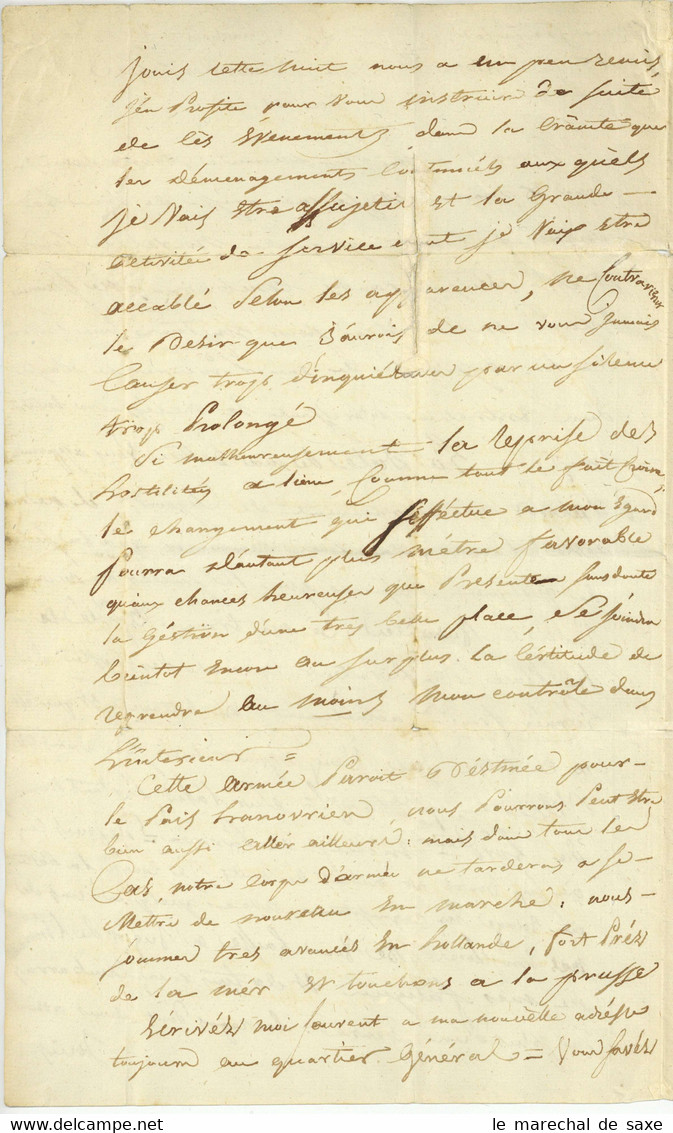 jouis cette nuit nous a un peu remis,
j'en Profite pour vous instruire de suite
de ces Évenements, dans la Crainte que
les déménagements Continuéls aux quéls
je Vais Etre assujetti et la Grande
activitée de Service dont je Vais etre
accablé Selon les apparences, ne Contrarient
le Desir que J'aurois de ne vous Jamais
Causer trop d'inquiétudes par un silence
trop Prolongé
Si malheureusement la reprise des
hostilités a lieu, Comme tout le fait Croire,
le changement qui s'éfféctue a mon Egard
Pourra d'autant plus m'étre favorable
qu'aux chances heureuses que Présente sans doute
la Géstion d'une tres belle place, Se Joindra
bientot Encore au Surplus la Cértitude de
reprendre au moins mon contrôle dans
L'interieur =
Cette armée Paroit Déstinée pour
le Païs hanovrien, nous Pourrons Peut etre
bien aussi allér ailleurs: mais dans tous les
Cas, notre Corps d'armée ne tardera pas a se
Mettre de nouveau En marche; nous
sommes tres avancés En hollande, fort Prés
de la mér et touchons a la prusse
Ecrivéz moi souvent a ma nouvélle adrésse
toujours au quartier Général = Vous savéz
le marechal de saxe